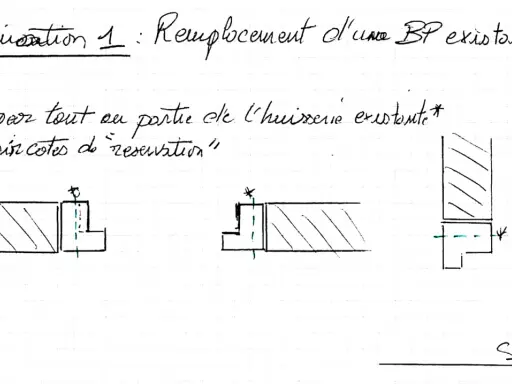 1 : Remplacement d'une BP exista
tout ou partie de l'huisserie existante*
cotes de "réservation"
*
*
*
S